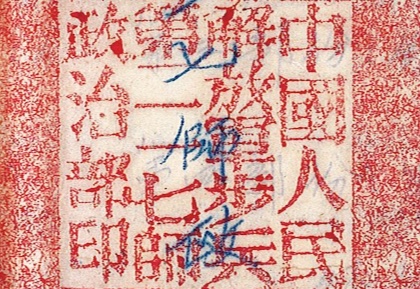 中國人民
解放軍步兵
第一一七師
政治部印
師